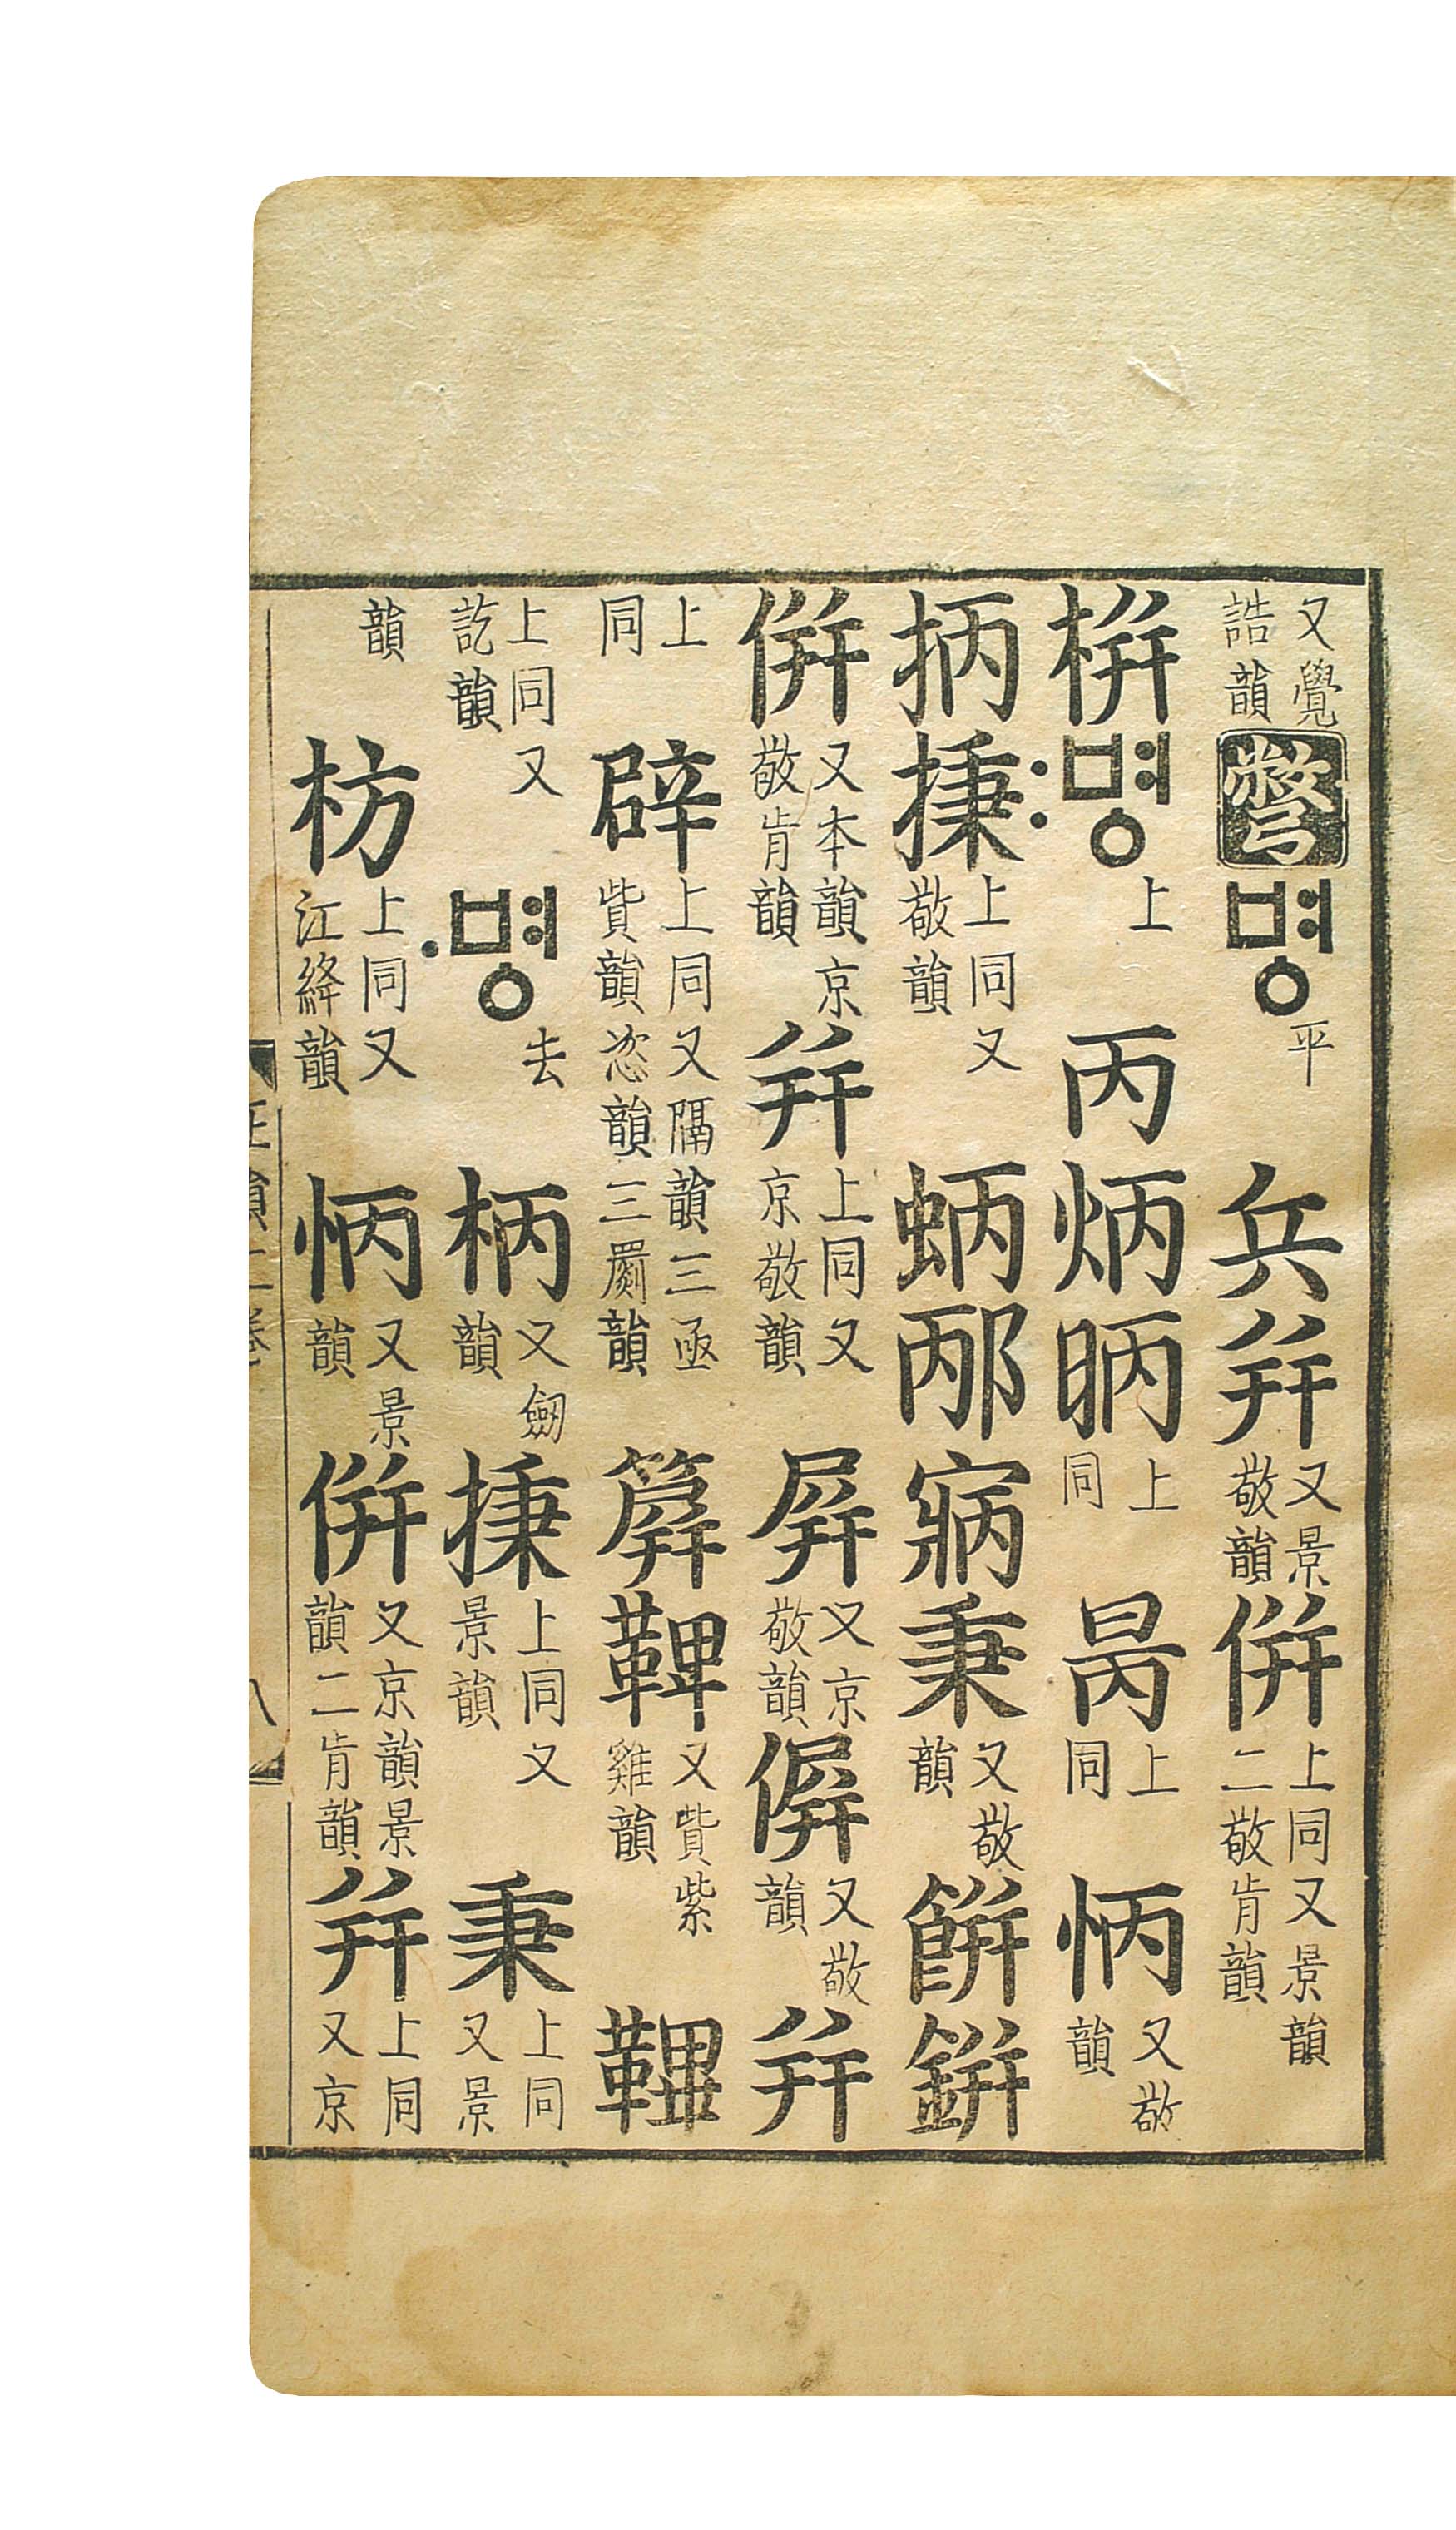 又覺誥韻彆병平兵幷又景敬韻倂上同又景韻二敬肯韻
栟〯병上丙炳昞上同昺上同怲又敬韻
抦㨀上同又敬韻蛃邴寎秉又敬韻餠鉼
倂又本韻京敬肯韻幷上同又京敬韻屛又京敬韻偋又敬韻幷
上同辟上同又隔韻三亟貲韻恣韻三罽韻箳鞞又貲紫雞韻
上同又訖韻〮병去柄又劒韻㨀上同又景韻秉上同又景
韻枋上同又江絳韻怲又景韻倂又京韻景韻二肯韻幷上同又京